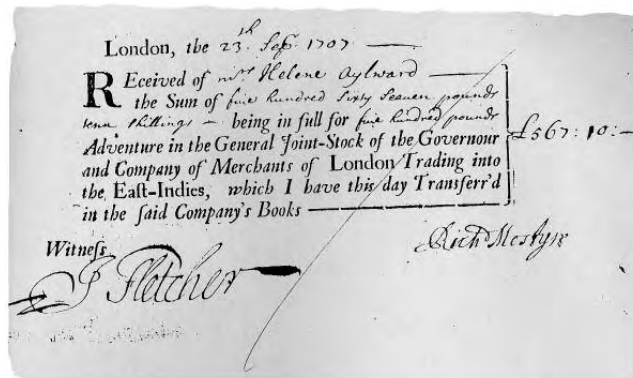 London, the 23th Sep. 1707
REceived of Mrs Helene Aylward
the Sum of five hundred Sixty Seaven pounds
tenn shillings being in full for five hundred pounds
Adventure in the General Joint-Stock of the Governour
and Company of Merchants of London Trading into
the Eaſt-Indies, which I have this day Transferr'd
in the ſaid Company's Books
£567:10:-
Witneſs
Richd Mostyn
J Fletcher